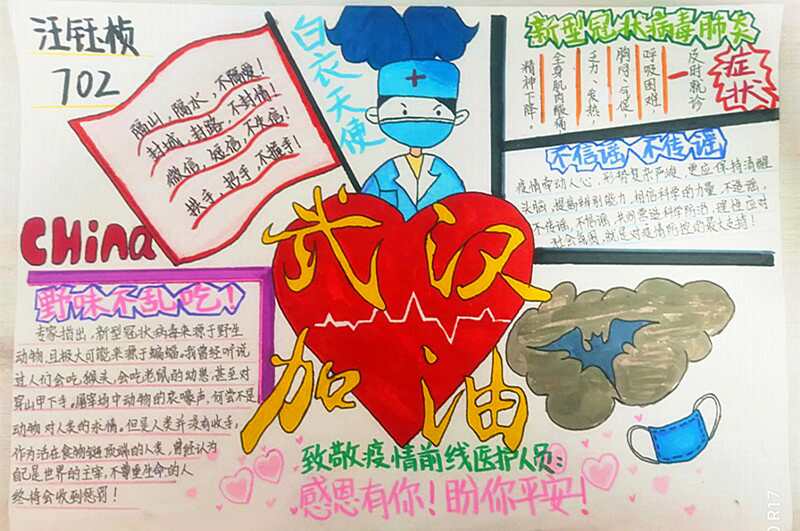 汪钰桢
702
隔山，隔水，不隔爱！
封城，封路，不封情！
微信，短信，不失信！
拱手，招手，不握手！
白衣天使
新型冠状病毒肺炎
症状
及时就诊
呼吸困难，
胸闷、气促，
乏力、发热，
全身肌肉酸痛
精神下降，
不信谣 不传谣
疫情牵动人心，形势复杂严峻，更应保持清醒
头脑，提高辨别能力，相信科学的力量，不造谣，
不传谣，不信谣，
社会氛围，就是对疫情防控的最大支持！
China
野味不乱吃！
专家指出，新型冠状病毒来源于野生
动物，且极大可能来源于蝙蝠，我曾经听说
过人们会吃猴头，会吃老鼠的幼崽，甚至对
穿山甲下手。屠宰场中动物的哀嚎声，何尝不是
动物对人类的求情。但是人类并没有收手，
作为活在食物链顶端的人类，曾经认为
自己是世界的主宰，不尊重生命的人
终将会收到惩罚！
武汉
加油
致敬疫情前线医护人员：
感恩有你！盼你平安！